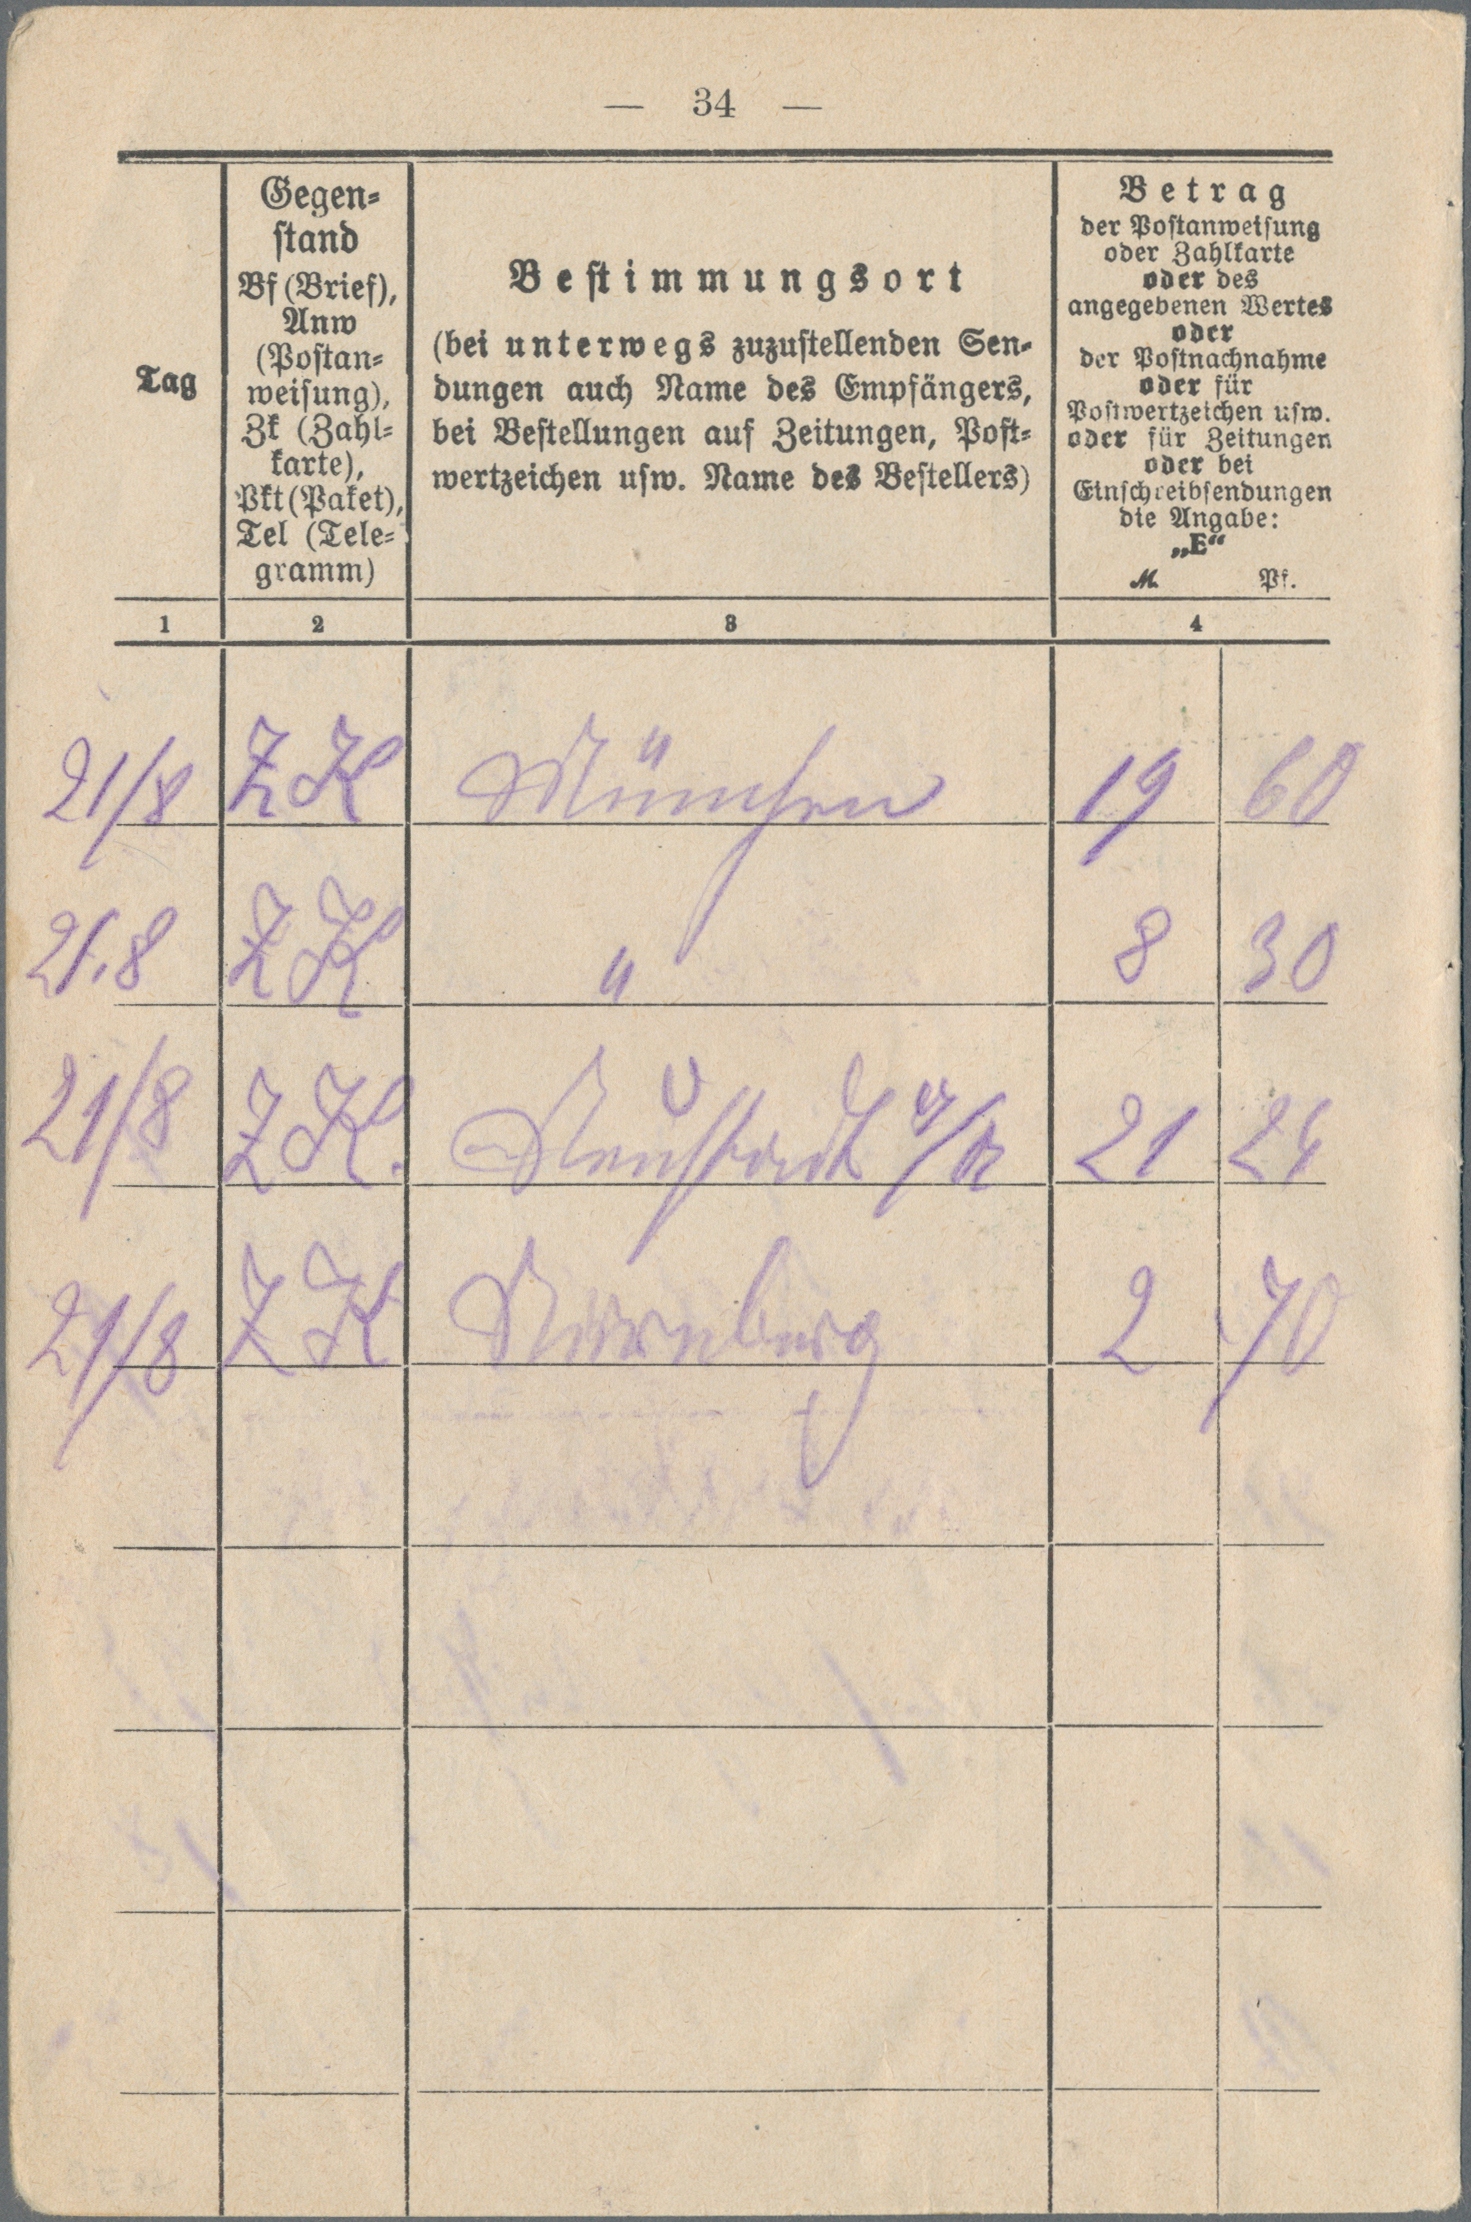 — 34 —
Tag
Gegen-
stand
Bf (Brief),
Anw
(Postan-
weisung),
Zk (Zahl-
karte),
Pkt (Paket),
Tel (Tele-
gramm)
Bestimmungsort
(bei unterwegs zuzustellenden Sen-
dungen auch Name des Empfängers,
bei Bestellungen auf Zeitungen, Post-
wertzeichen usw. Name des Bestellers)
Betrag
der Postanweisung
oder Zahlkarte
oder des
angegebenen Wertes
oder
der Postnachnahme
oder für
Postwertzeichen usw.
oder für Zeitungen
oder bei
Einschreibsendungen
die Angabe:
„E“
M. Pf.
1 2 3 4
21/8 ZK München 19 60
21.8 ZK " 8 30
21/8 ZK. Neustadt 21 24
21/8 ZK Nürnberg 2 70